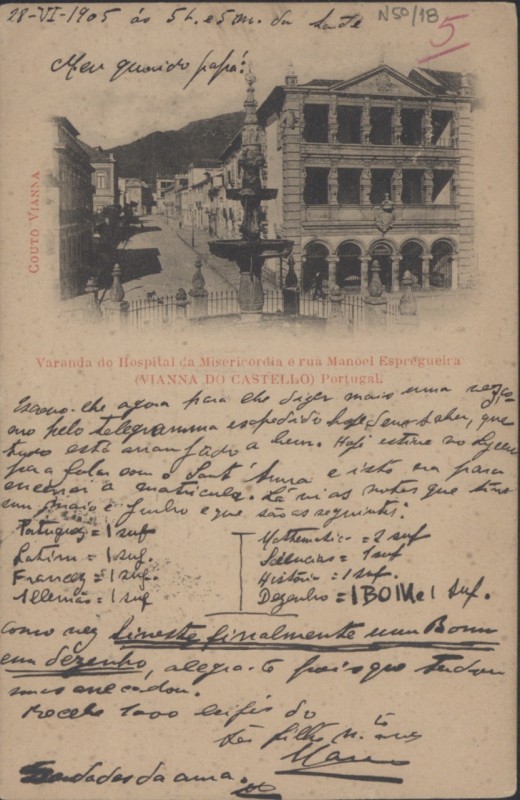 28-VI-1905 ás 5h. e 5m. da tarde
N50/18
5
Meu querido papá!
COUTO VIANNA
Varanda do Hospital da Misericordia e rua Manoel Espregueira
(VIANNA DO CASTELLO) Portugal.
lhe agora para lhe dizer mais uma vez,
mo pelo telegramma expedido hoje, que
tudo está arranjado a bem. Hoje estive no lyceu
para falar com o Sant'Anna e isto era para
a matricula. Lá vi as notas que tive
em maio e junho e que são as seguintes:
Portuguez = 1 suf
Latim = 1 suf.
Francez = 1 suf.
Allemão = 1 suf
Mathematica = 2 suf
Sciencias = 1 suf
História = 1 suf.
Dezenho = 1 BOM e 1 suf.
Como vez tiveste finalmente um Bom
em dezenho, alegra-te pois que
Recebe 1000 do
teu filho m.to am.o
Mario
Saudades da ama.